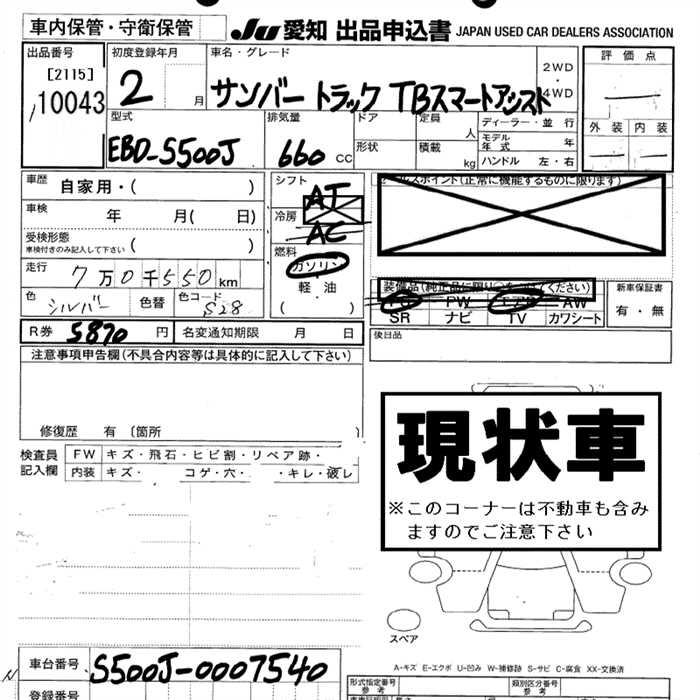 車内保管・守衛保管
JU 愛知 出品申込書 JAPAN USED CAR DEALERS ASSOCIATION
出品番号 初度登録年月 車名・グレード 評価点
[2115]
10043
2 月 サンバートラック TBスマートアシスト 2WD・4WD
外装 内装
型式 排気量 ドア 定員 ディーラー・並行
EBD-S500J 660 CC 形状 人 積載 kg モデル年式 年 ハンドル 左・右
車歴 自家用・( ) シフト AT
セールスポイント(正常に機能するものに限ります)
車検 年 月( 日) 冷房 AC
受検形態 ( )
車検付きのみ記入して下さい
燃料 ガソリン・軽・油 ( )
走行 7万0千550km
装備品(純正品に限り○をつけてください) 新車保証書
PS PW エアB AW 有・無
SR ナビ TV カワシート
色 シルバー 色替 色コード S28
R券 5870 円 名変通知期限 月 日
後日品
注意事項申告欄(不具合内容等は具体的に記入して下さい)
修復歴 有 〔箇所
検査員記入欄 FW キズ・飛石・ヒビ割・リペア跡・
内装 キズ・ コゲ・穴・ ・キレ・破レ
現状車
※このコーナーは不動車も含みますのでご注意下さい
スペア
A-キズ E-エクボ U-凹み W-補修跡 S-サビ C-腐食 XX-交換済
車台番号 S500J-0007540
形式指定番号 参考 類別区分番号 参考
登録番号